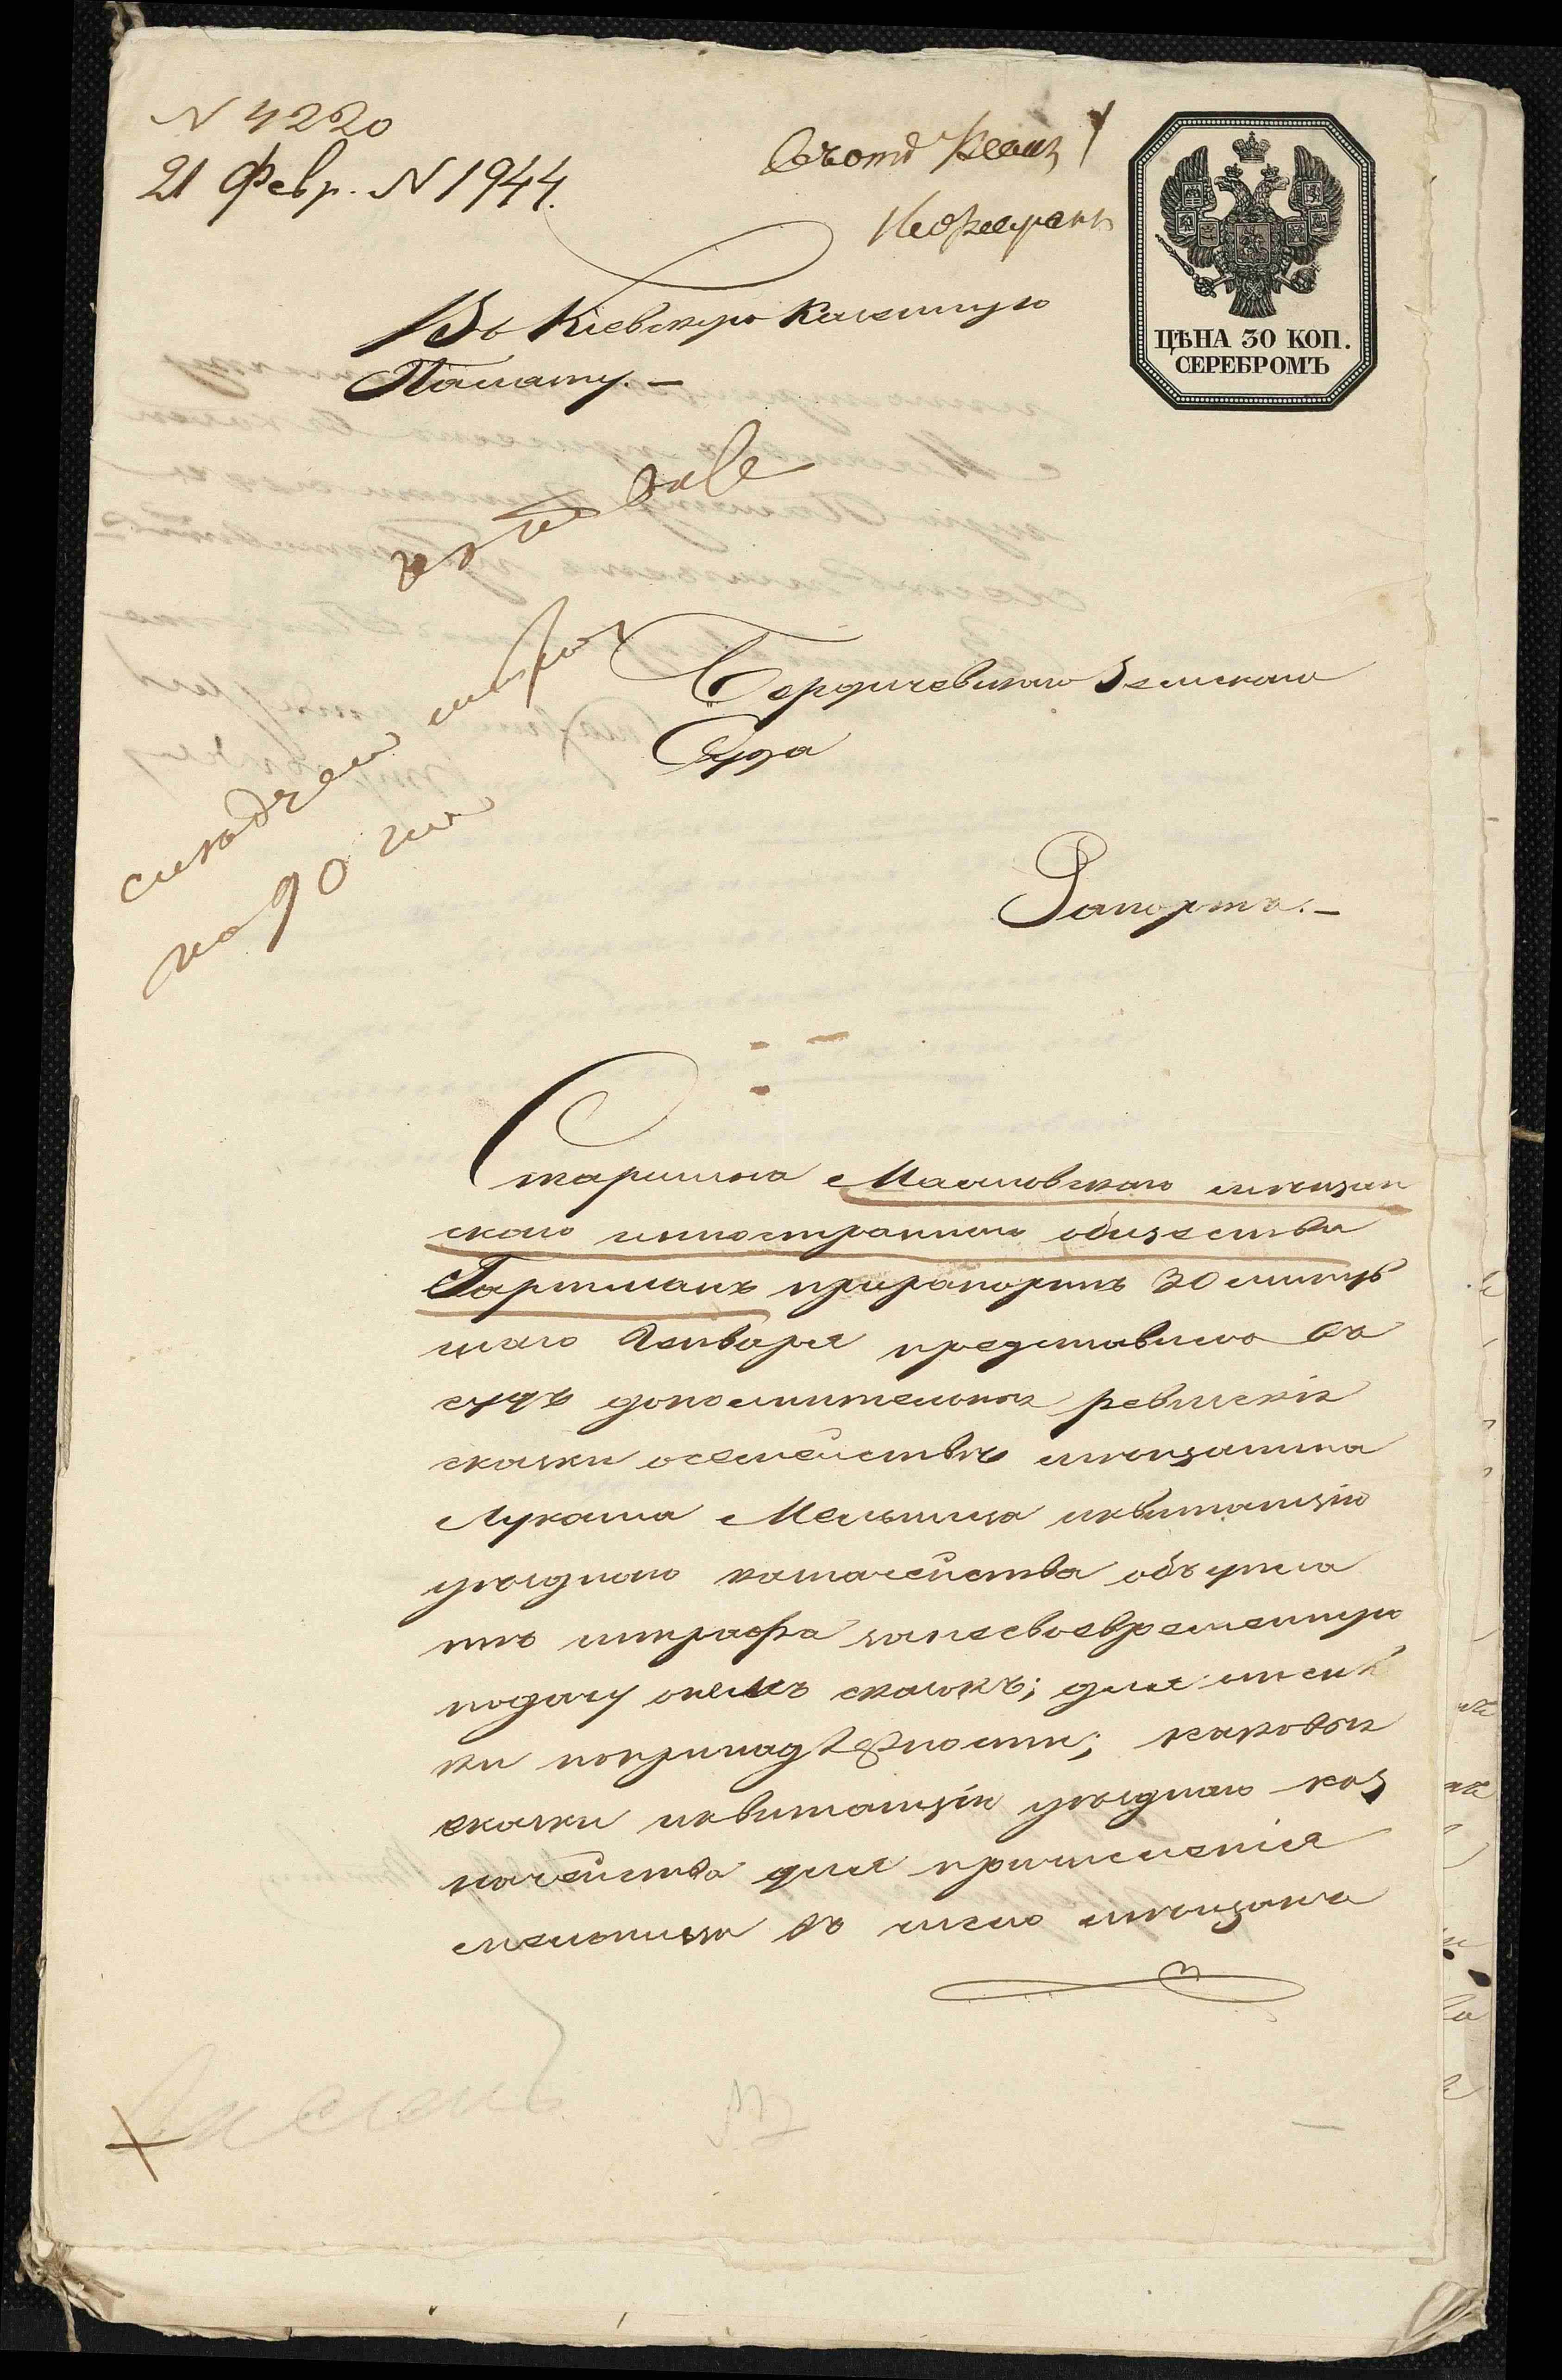 N 4220
21 Февр. N 1944.
ЦѢНА 30 КОП.
СЕРЕБРОМЪ
Въ Кіевскую Казенную
Палату.-
Бердичевскаго Земскаго
Суда
Рапортъ.-
Старшина Махновскаго мѣщан
скаго инностраннаго общества
Гартманъ при рапортѣ 30 минув
шаго Генваря представилъ въ
судъ дополнительныя ревизскія
сказки о семействѣ мѣщанина
Лукаша Мельница и квитанцію
уѣзднаго казначейства объ упла
тѣ штрафа за несвоевременную
подачу онымъ сказокъ; для отсыл
ки по принадлежности; каковыя
сказки и квитанціи уѣзднаго каз
начейства для причисленія
Мельница въ число мѣщанъ
на 90